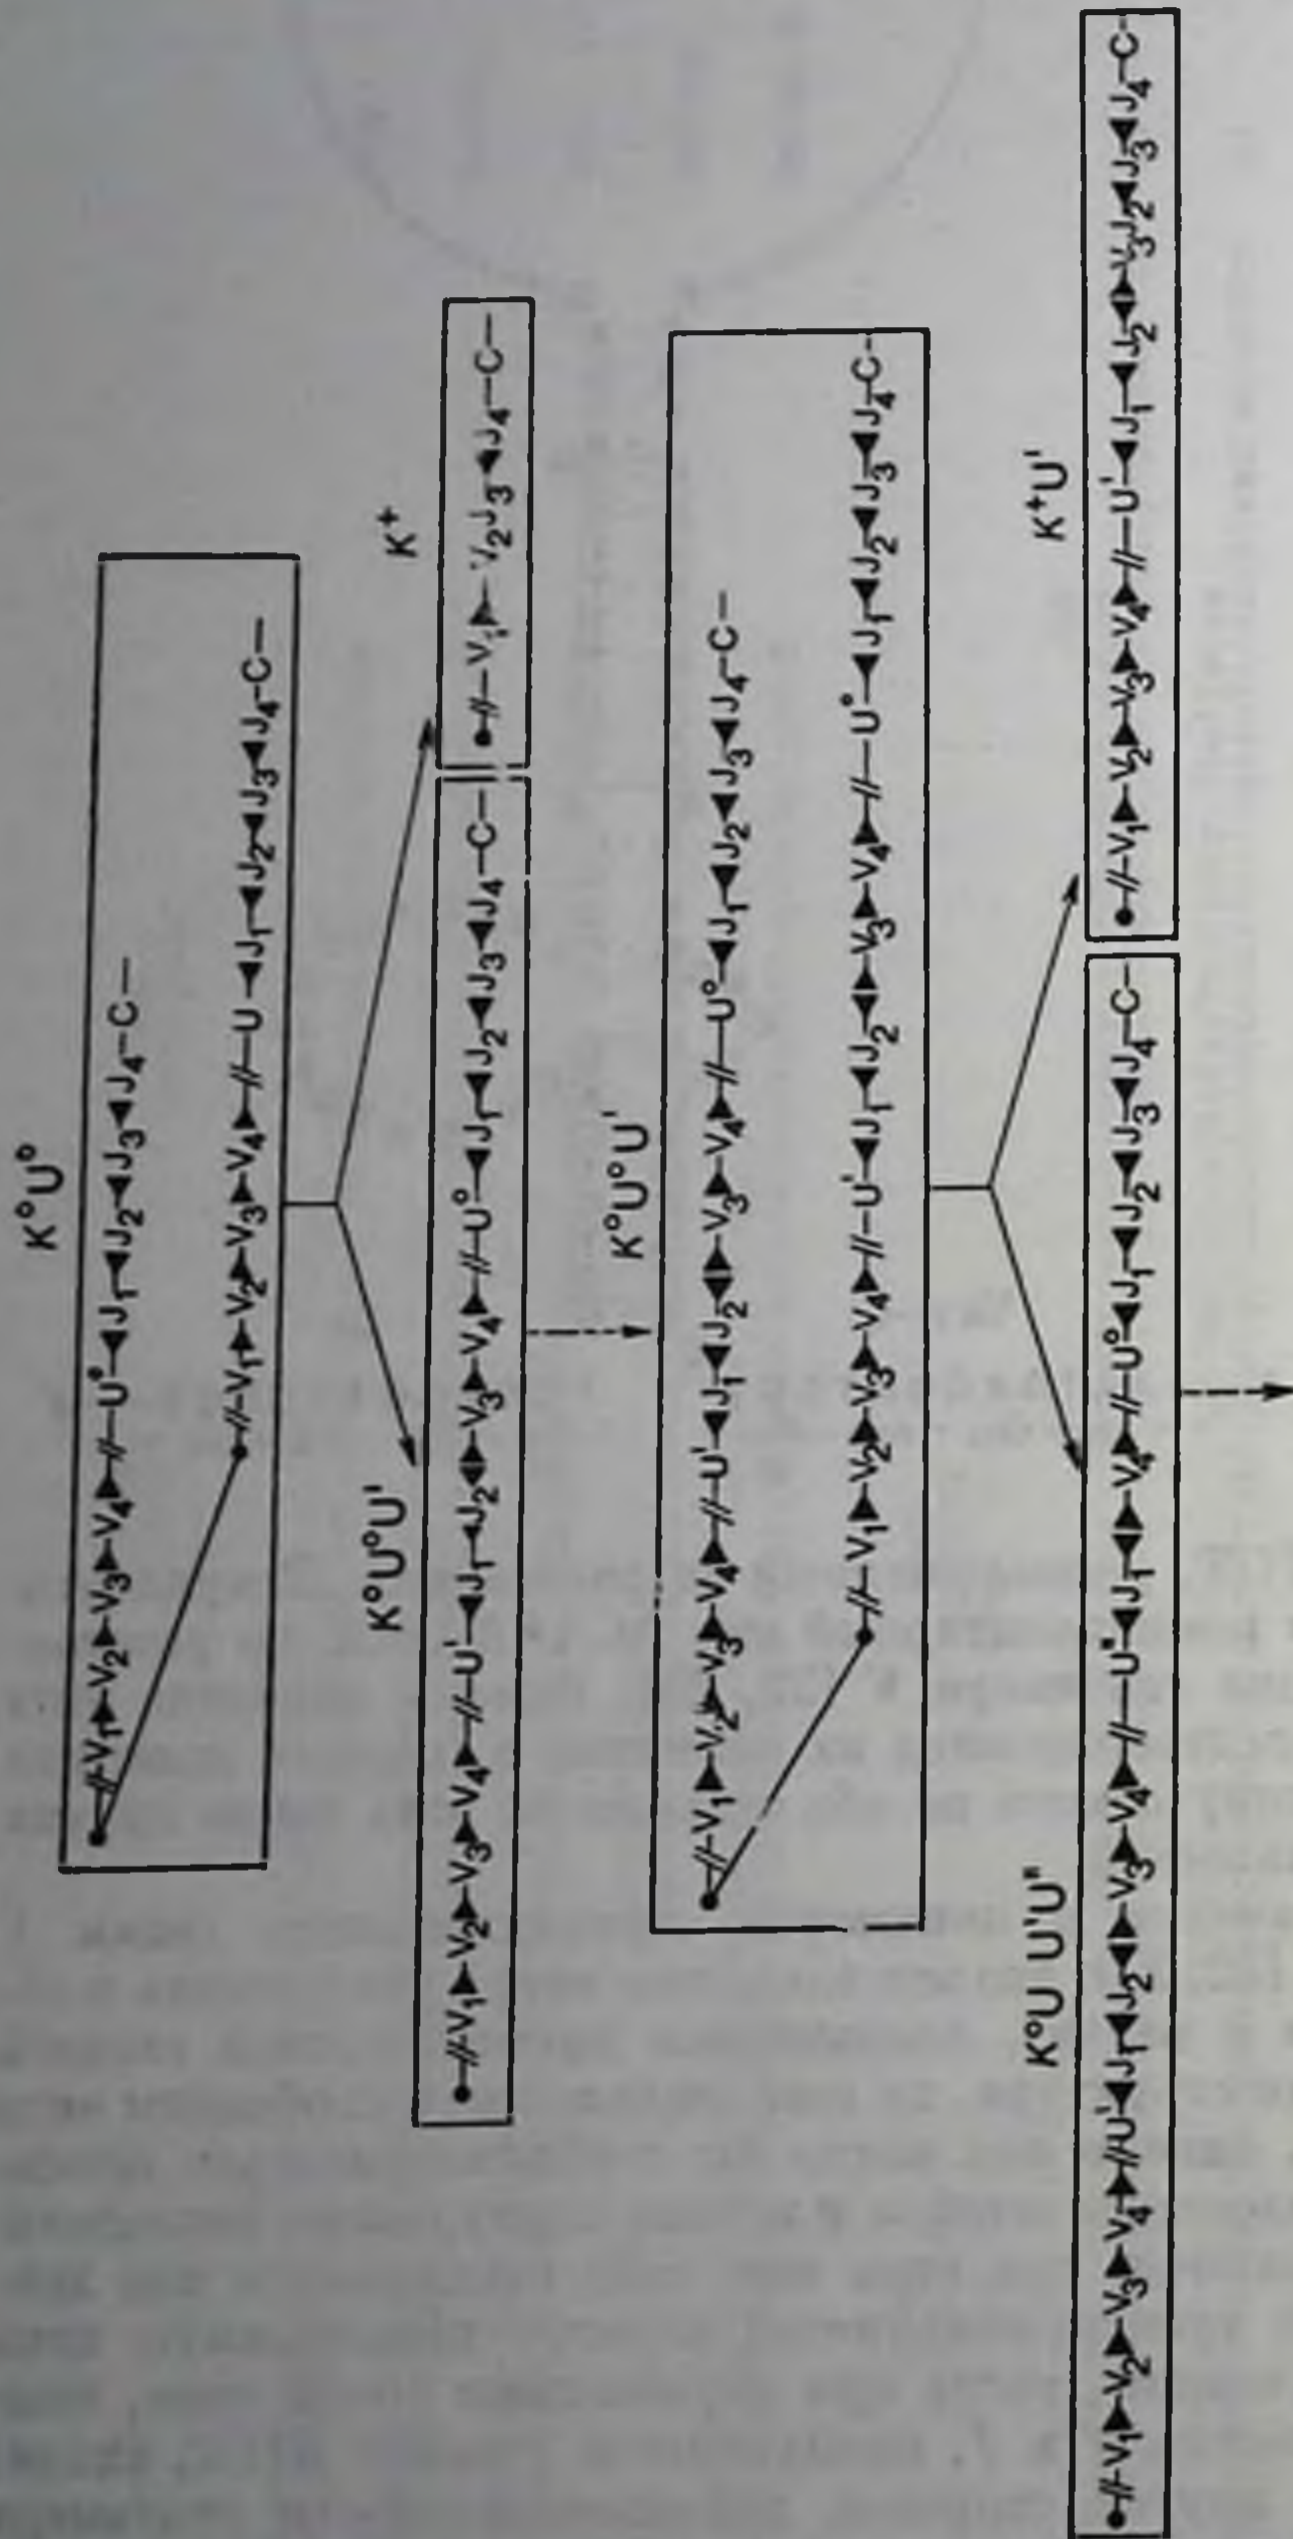 K°U°
●-//-V₁▶V₂▶V₃▶V₄▶-//-U°-◀J₁◀J₂◀J₃◀J₄-C-
●-//-V₁▶V₂▶V₃▶V₄▶-//-U-◀J₁◀J₂◀J₃◀J₄-C-
K°U°U'
K⁺
●-//-V₁▶V₂▶V₃▶V₄▶-//-U'-◀J₁◀J₂◀▶V₃▶V₄▶-//-U°-◀J₁◀J₂◀J₃◀J₄-C-
●-//-V₁▶V₂J₃◀J₄-C-
K°U°U'
●-//-V₁▶V₂▶V₃▶V₄▶-//-U'-◀J₁◀J₂◀▶V₃▶V₄▶-//-U°-◀J₁◀J₂◀J₃◀J₄-C-
●-//-V₁▶V₂▶V₃▶V₄▶-//-U'-◀J₁◀J₂◀▶V₃▶V₄▶-//-U°-◀J₁◀J₂◀J₃◀J₄-C-
K°U U'U"
K⁺U'
●-//-V₁▶V₂▶V₃▶V₄▶-//-U'-◀J₁◀J₂◀▶V₃▶V₄▶-//-U"-◀J₁◀▶V₄▶-//-U°-◀J₁◀J₂◀J₃◀J₄-C-
●-//-V₁▶V₂▶V₃▶V₄▶-//-U'-◀J₁◀J₂◀▶ J₂◀J₃◀J₄-C-